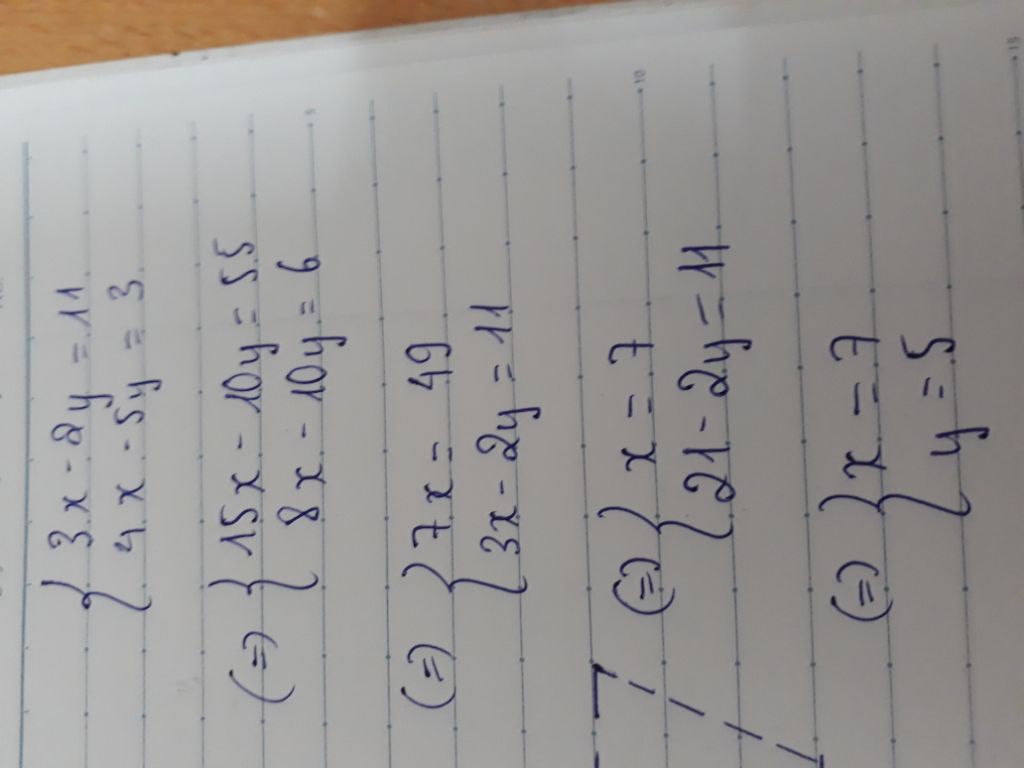 3x - 2y = 11
4x - 5y = 3
(=) 15x - 10y = 55
8x - 10y = 6
(=) 7x = 49
3x - 2y = 11
(=) x = 7
21 - 2y = 11
(=) x = 7
y = 5
10
15